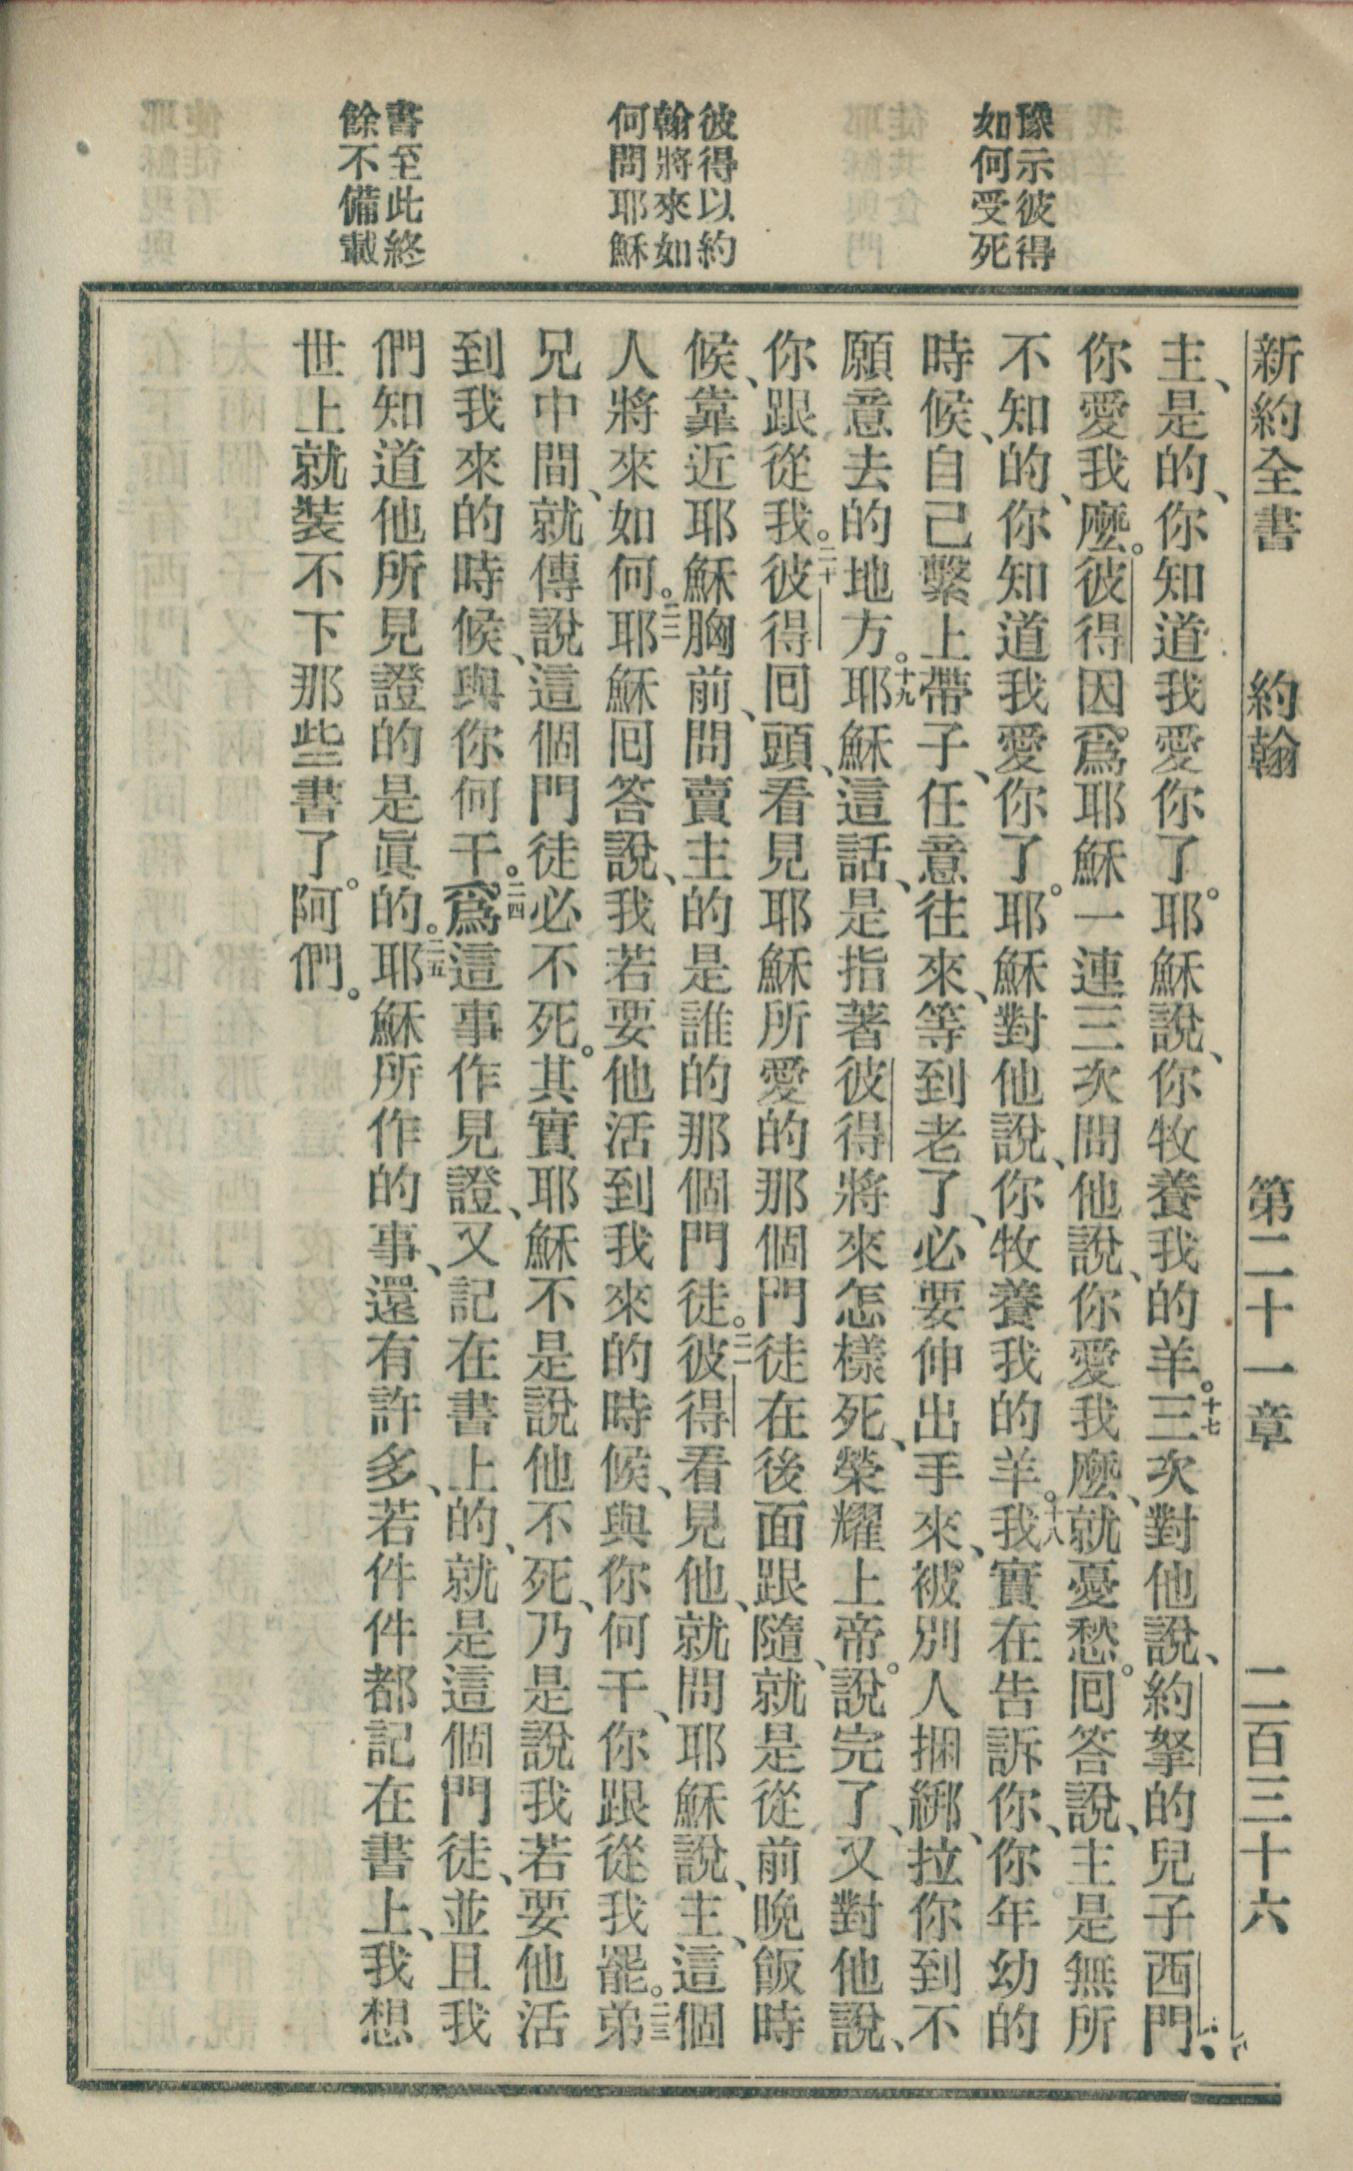 豫示彼得
如何受死
彼得以約
翰將來如
何問耶穌
書至此終
餘不備載
新約全書 約翰 第二十一章 二百三十六
主、是的、你知道我愛你了。耶穌說、你牧養我的羊。十七三次對他說、約拏的兒子西門、
你愛我麼。彼得因爲耶穌一連三次問他說、你愛我麼、就憂愁。回答說、主是無所
不知的、你知道我愛你了。耶穌對他說、你牧養我的羊。十八我實在告訴你、你年幼的
時候、自己繫上帶子、任意往來、等到老了、必要伸出手來、被別人捆綁、拉你到不
願意去的地方。十九耶穌這話、是指著彼得將來怎樣死、榮耀上帝。說完了、又對他說、
你跟從我。二十彼得回頭、看見耶穌所愛的那個門徒在後面跟隨、就是從前晚飯時
候、靠近耶穌胸前、問賣主的是誰的那個門徒。二一彼得看見他、就問耶穌說、主、這個
人將來如何。二二耶穌回答說、我若要他活到我來的時候、與你何干、你跟從我罷。二三弟
兄中間、就傳說這個門徒必不死。其實耶穌不是說他不死、乃是說我若要他活
到我來的時候、與你何干。二四爲這事作見證、又記在書上的、就是這個門徒、並且我
們知道他所見證的是眞的。二五耶穌所作的事、還有許多、若件件都記在書上、我想
世上就裝不下那些書了。阿們。